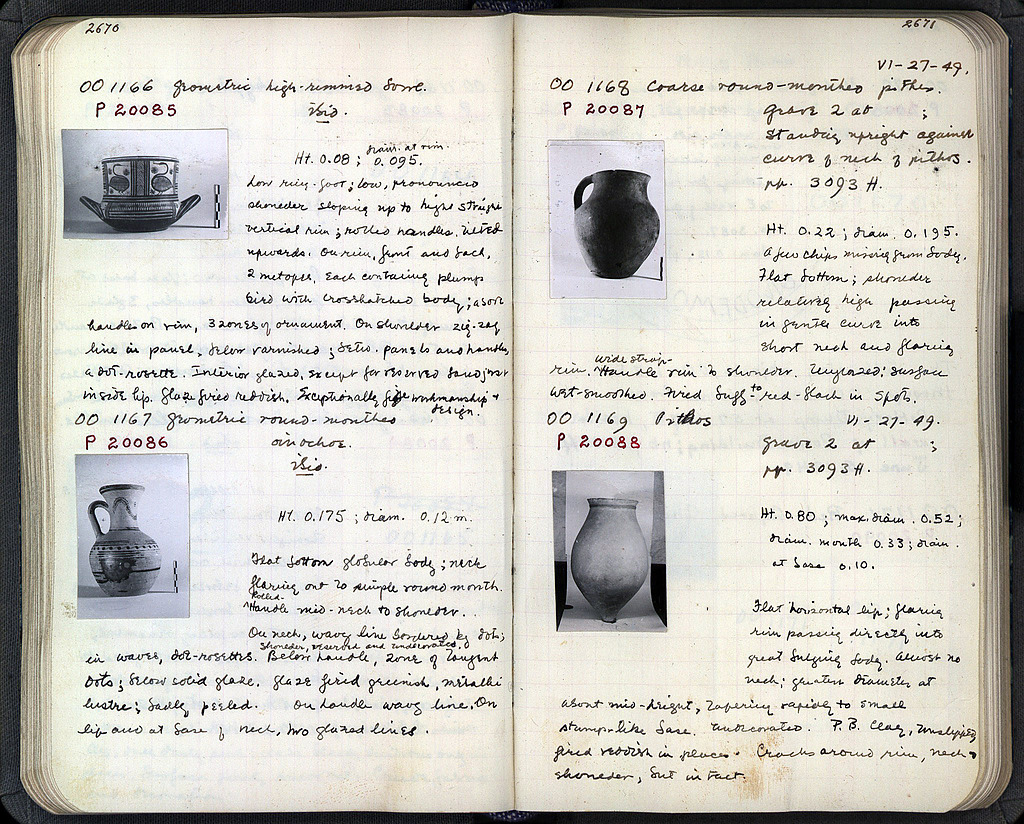 2670
OO 1166 Geometric high-rimmed bowl.
P 20085
ibid.
diam. at rim.
Ht. 0.08 ; 0.095.
Low ring-foot; low, pronounced
shoulder sloping up to high straight
vertical rim; rolled handles, tilted
upwards. On rim, front and back,
2 metopes, each containing plump
bird with crosshatched body; above
handles on rim, 3 zones of ornament. On shoulder zig-zag
line in panel, below varnished; betw. panels and handles,
a dot-rosette. Interior glazed, except for reserved band just
inside lip. Glaze fired reddish. Exceptionally fine workmanship +
design.
OO 1167 Geometric round-mouthed
P 20086
oinochoe.
ibid.
Ht. 0.175 ; diam. 0.12 m.
Flat bottom globular body; neck
flaring out to simple round mouth.
Rolled
Handle mid-neck to shoulder.
On neck, wavy line bordered by dots;
shoulder, reserved and undecorated.
in waves, dot-rosettes. Below handle, zone of tangent
dots; below solid glaze. Glaze fired greenish, metallic
lustre; badly peeled. On handle wavy line. On
lip and at base of neck, two glazed lines.
2671
VI-27-49.
OO 1168 Coarse round-mouthed pithos.
P 20087
Grave 2 at ;
standing upright against
curve of neck of pithos.
pp. 3093 ff.
Ht. 0.22 ; diam. 0.195.
A few chips missing from body.
Flat bottom; shoulder
relatively high passing
in gentle curve into
short neck and flaring
wide strap-
rim. Handle rim to shoulder. Unglazed; surface
wet-smoothed. Fired buff to red-black in spots.
OO 1169 Pithos VI-27-49.
P 20088
Grave 2 at ;
pp. 3093 ff.
Ht. 0.80 ; max. diam. 0.52;
diam. mouth 0.33; diam.
at base 0.10.
Flat horizontal lip; flaring
rim passing directly into
great bulging body. Almost no
neck; greatest diameter at
about mid-height, tapering rapidly to small
stump-like base. Undecorated. P.B. Clay, unslipped,
fired reddish in places. Cracks around rim, neck +
shoulder, but intact.